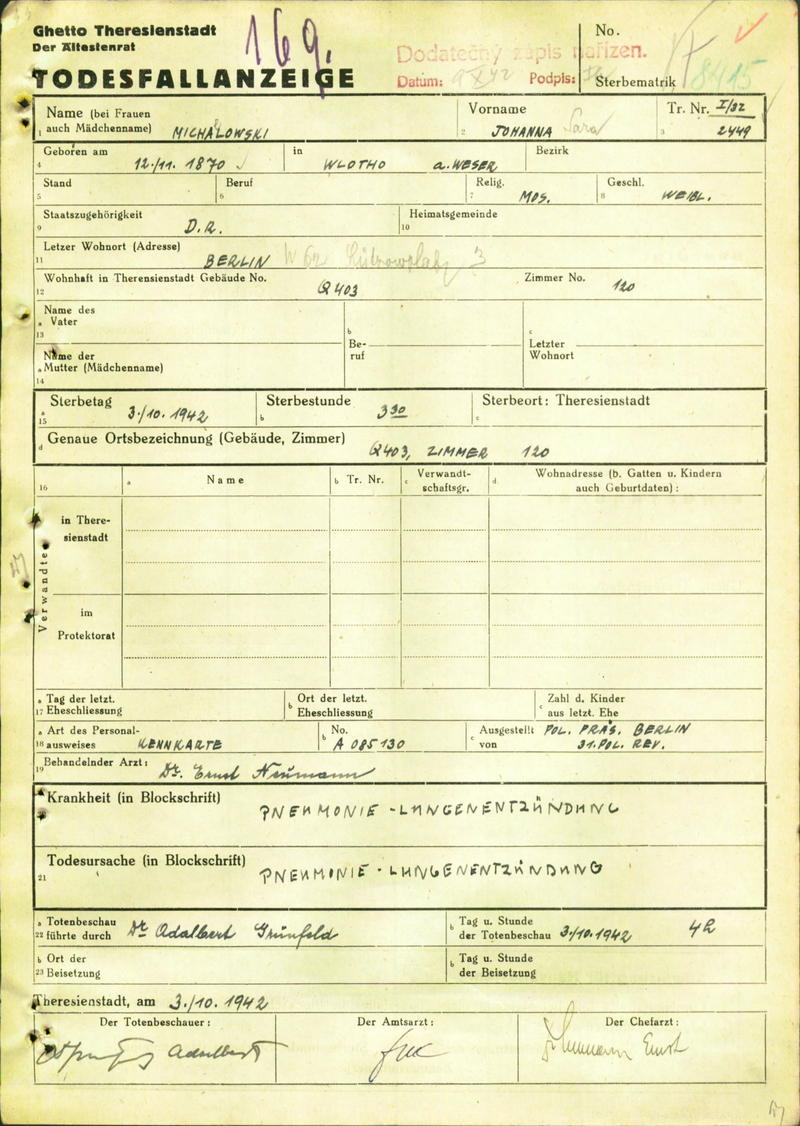 Ghetto Theresienstadt
Der Ältestenrat
TODESFALLANZEIGE
169.
Dodatečný zápis nařízen.
Datum: Podpis:
No.
Sterbematrik
8415
Name (bei Frauen
1 auch Mädchenname) MICHALOWSKI
Vorname
2 JOHANNA Sara
Tr. Nr. I/82
3 2449
Geboren am
4 12./11. 1870
in WLOTHO a. WESER
Bezirk
Stand
5
Beruf
6
Relig.
7 MOS.
Geschl.
8 WEIBL.
Staatszugehörigkeit
9 D.R.
Heimatsgemeinde
10
Letzer Wohnort (Adresse)
11 BERLIN W 62 Lützowplatz 3
Wohnhaft in Therensienstadt Gebäude No.
12 Q403
Zimmer No. 120
Name des
a Vater
13
Name der
a Mutter (Mädchenname)
14
b
Be-
ruf
c
Letzter
Wohnort
Sterbetag
a 15 3./10. 1942
Sterbestunde
b 3 30
Sterbeort: Theresienstadt
c
d Genaue Ortsbezeichnung (Gebäude, Zimmer)
Q403, ZIMMER 120
16
a Name
b Tr. Nr.
c Verwandt-
schaftsgr.
d Wohnadresse (b. Gatten u. Kindern
auch Geburtdaten) :
Verwandte
in There-
sienstadt
im
Protektorat
a Tag der letzt.
17 Eheschliessung
b Ort der letzt.
Eheschliessung
c Zahl d. Kinder
aus letzt. Ehe
a Art des Personal-
18 ausweises KENNKARTE
b No.
A 085130
c Ausgestellt POL. PRÄS. BERLIN
von 31. POL. REV.
19 Behandelnder Arzt: Dr. Ernst Neumann
Krankheit (in Blockschrift)
PNEUMONIE - LUNGENENTZÜNDUNG
Todesursache (in Blockschrift)
21 PNEUMINIE - LUNGENENTZÜNDUNG
a Totenbeschau
22 führte durch Dr. Adalbert Grünfeld
b Tag u. Stunde
der Totenbeschau 3./10. 1942
b Ort der
23 Beisetzung
b Tag u. Stunde
der Beisetzung
Theresienstadt, am 3./10. 1942
Der Totenbeschauer:
Der Amtsarzt:
Der Chefarzt:
Adalbert
Ernst